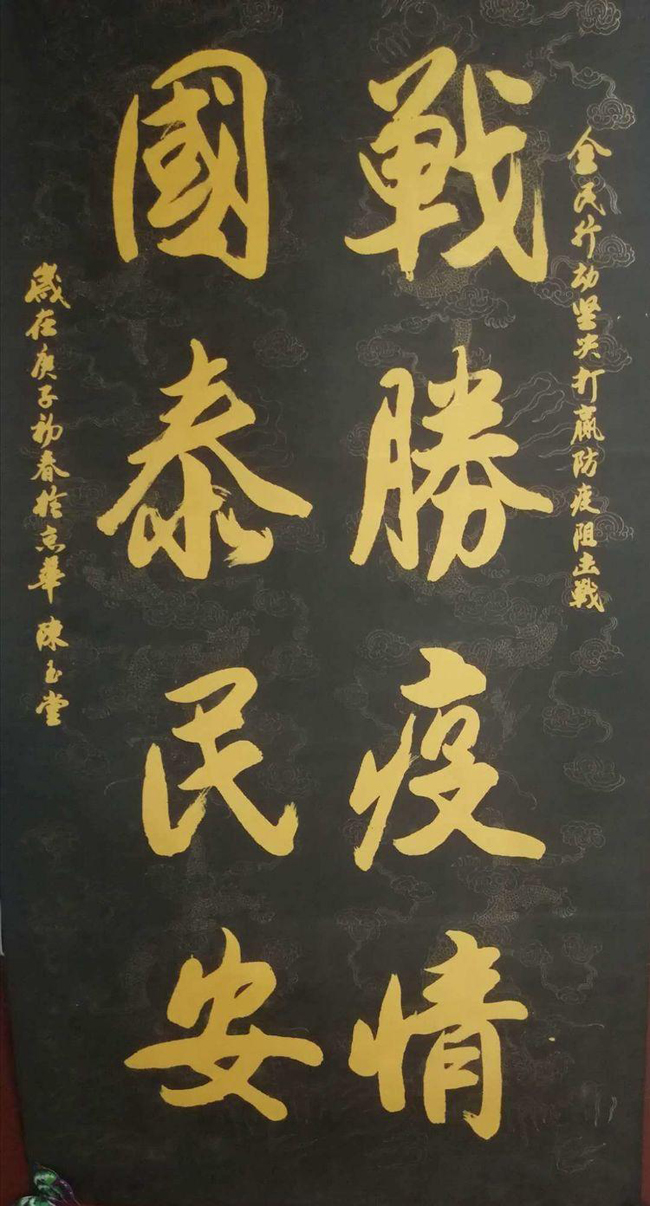 全民行动坚决打赢防疫阻击戰
戰勝疫情
國泰民安
歲在庚子初春於京華 陳玉堂